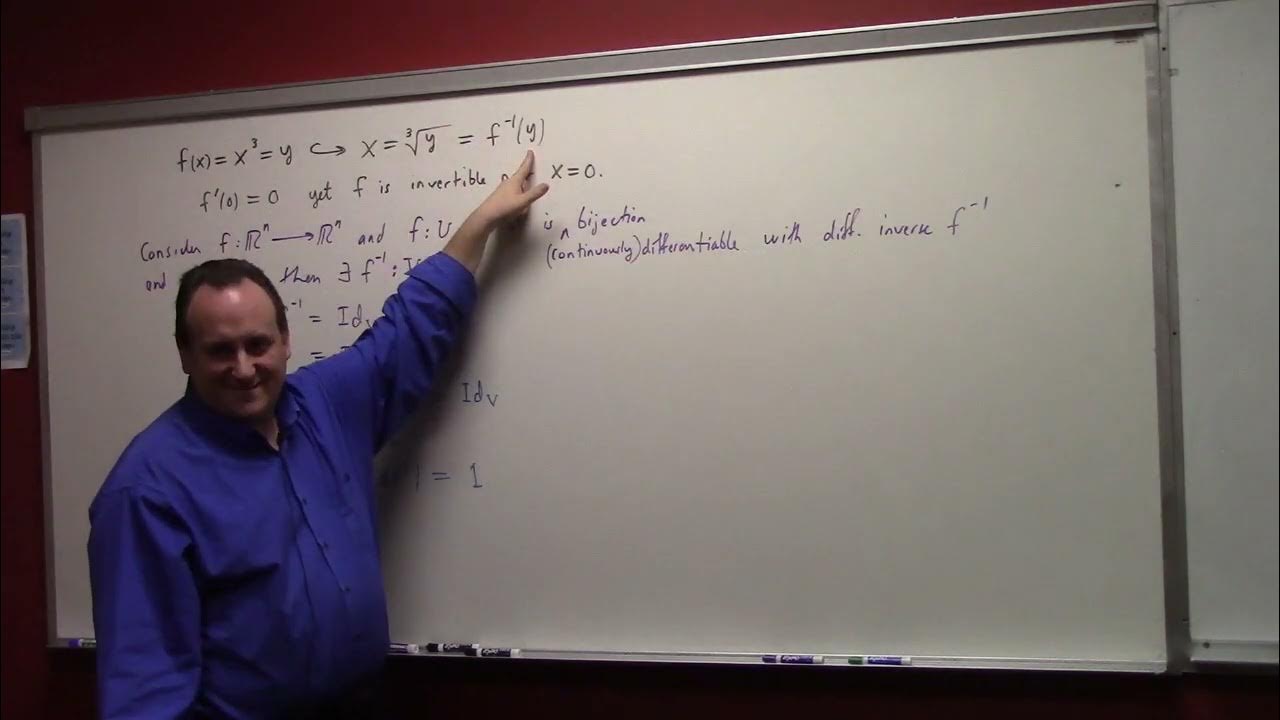 f(x) = x³ = y ↪ x = ∛y = f⁻¹(y)
f'(0) = 0 yet f is invertible x = 0.
Consider f: ℝⁿ ⟶ ℝⁿ and f: U is ∧ bijection
(continuously) differentiable with diff. inverse f⁻¹
and then ∃ f⁻¹:
⁻¹ = Id
=
Id_V
) = 1